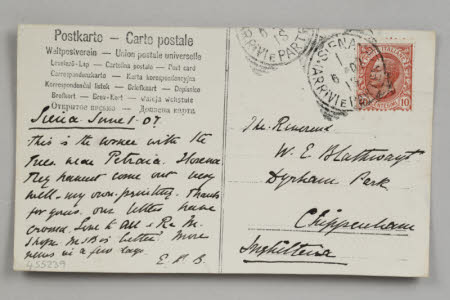 Postkarte - Carte postale
Weltpostverein - Union postale universelle
Levelező-Lap - Cartolina postale - Post card
Correspondenzkarte - Karta korespondencyjna
Korespondenční lístek - Briefkaart - Dopisnice
Brefkort - Brev-Kort - Männja wästuste
Открытое письмо - Дописна карта
Siena June 1. 07.
This is the corner with the
trees near Petraia. Florence
They haven't come out very
well - my own printing. Thanks
for yours. our letters have
crossed. Love to all & Re M.
hope Mrs B is better. More
news in a few days.
E. P. B.
455239
The Reverend
W. E. Blathwayt
Dyrham Park
Chippenham
Inghilterra
SIENA
ARRIVI E
ARRIVI E PART
10